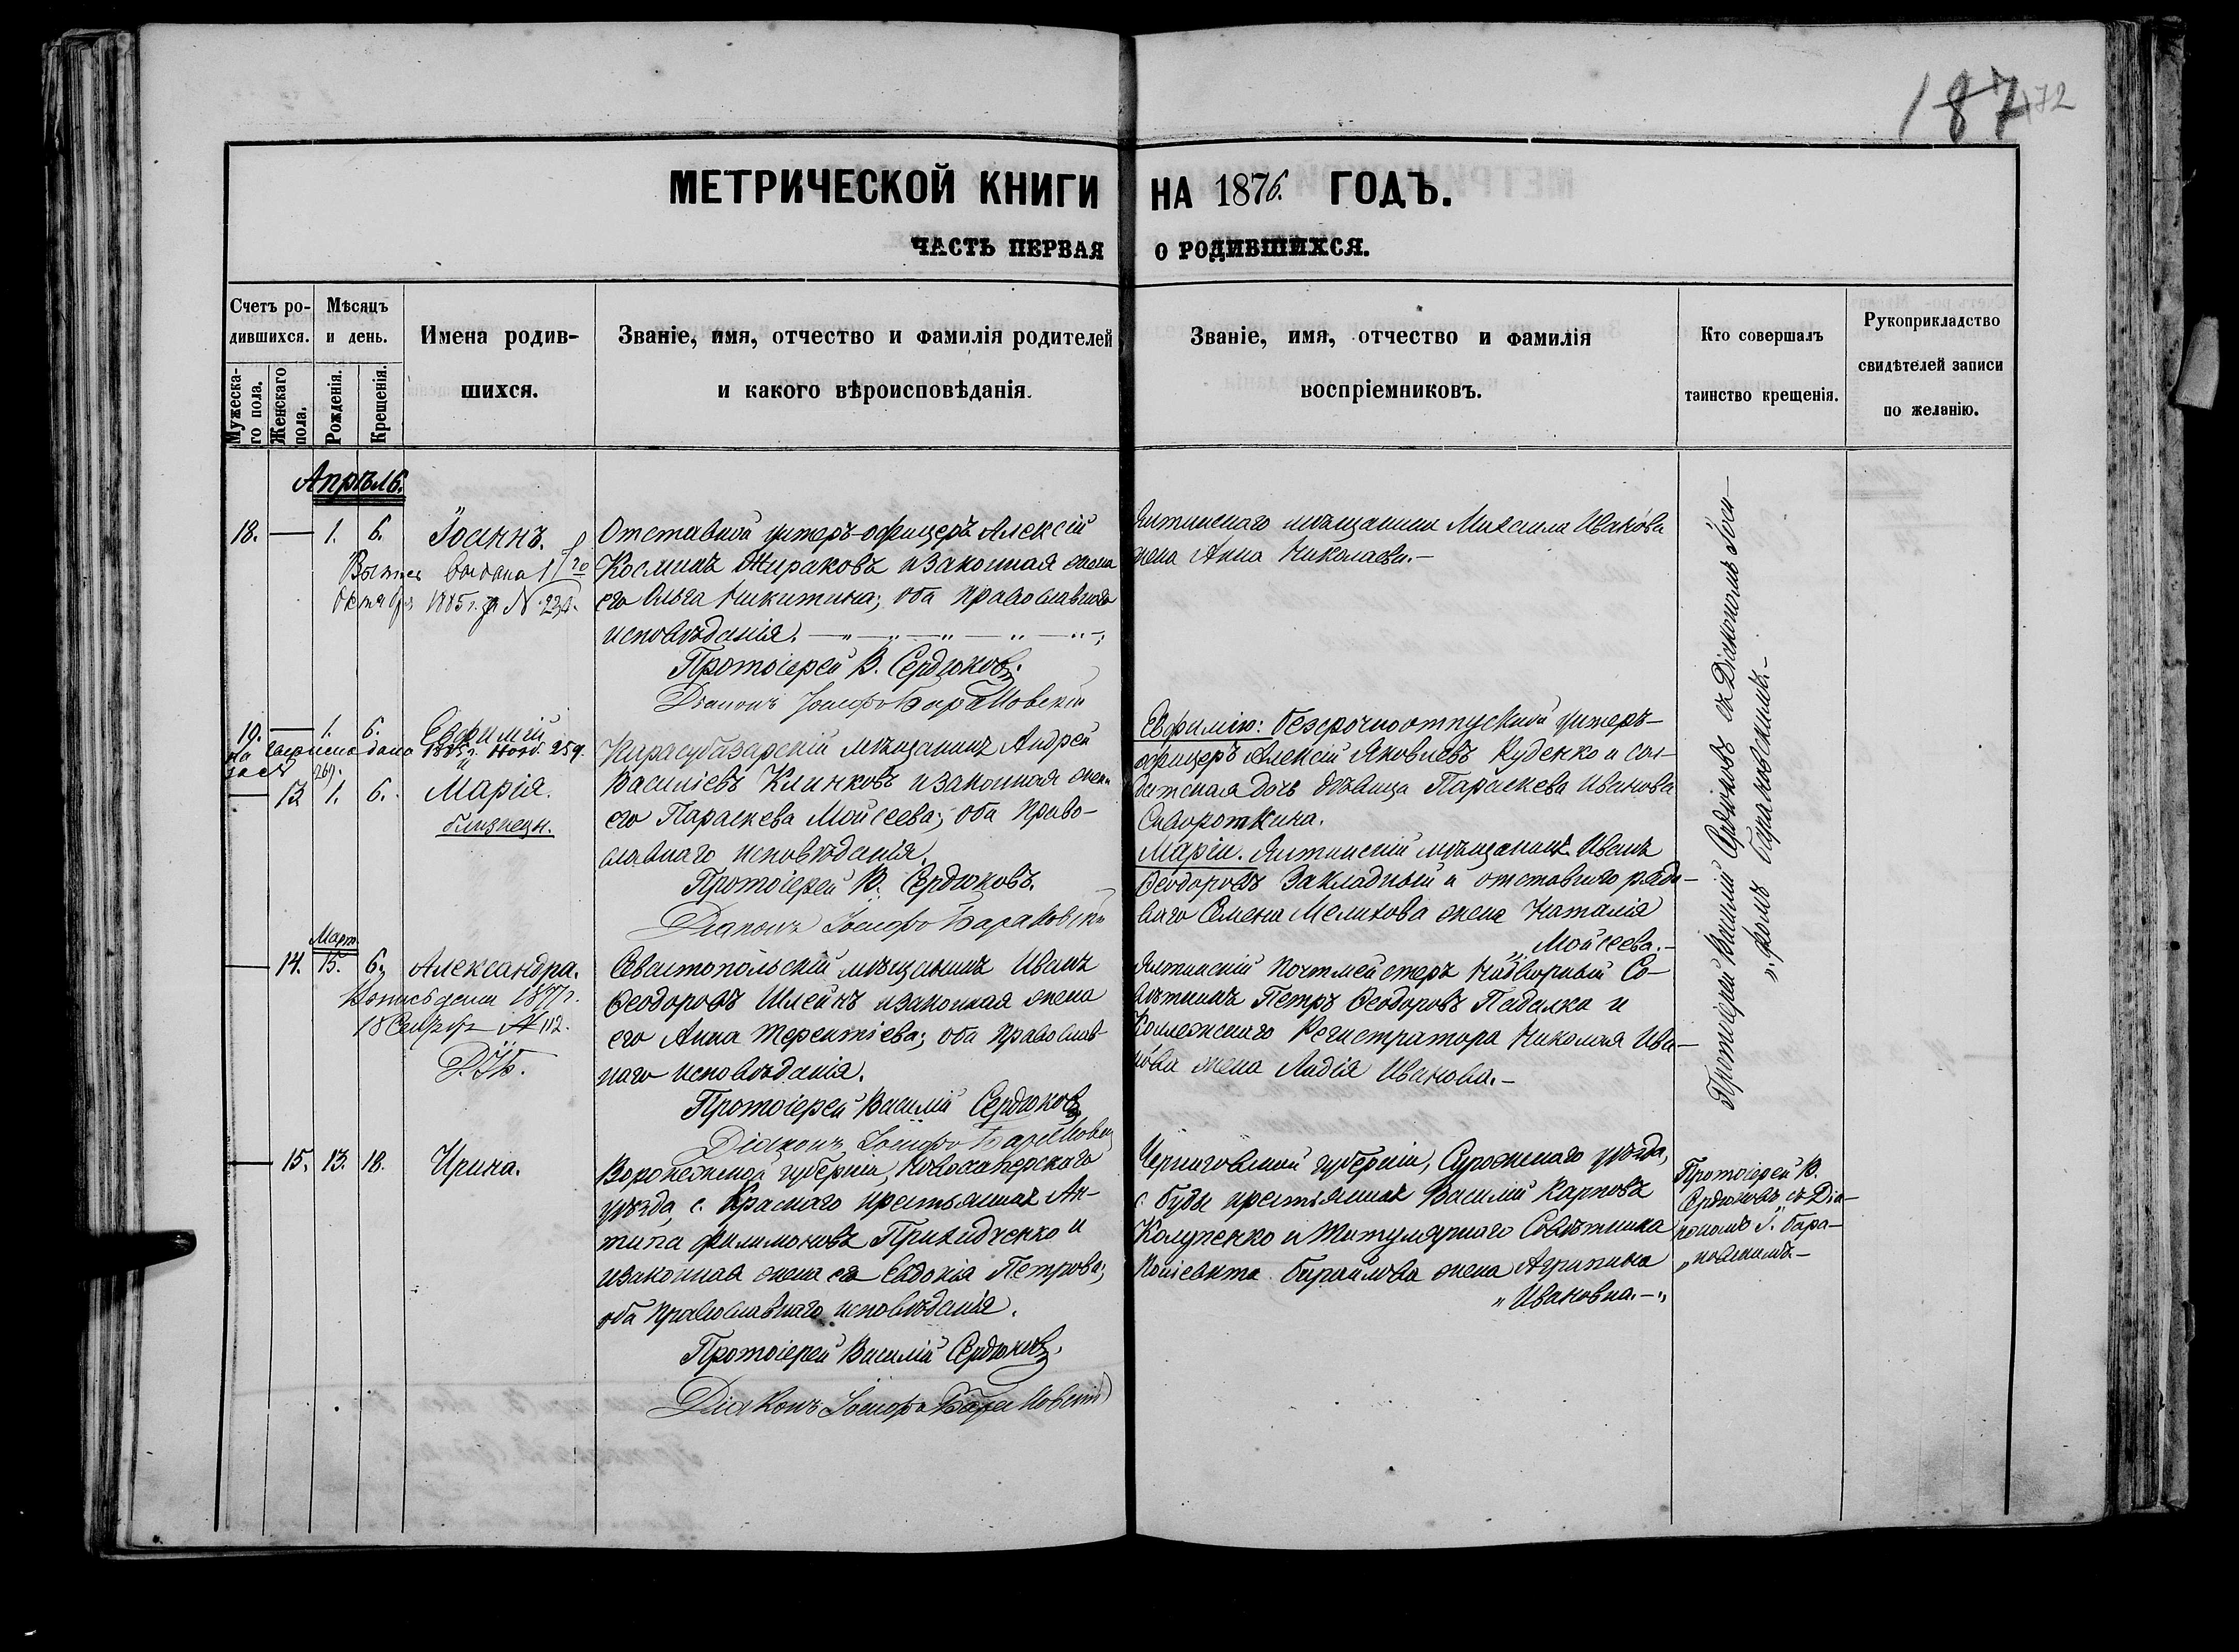 187
172
МЕТРИЧЕСКОЙ КНИГИ НА 1876. ГОДЪ.
ЧАСТЬ ПЕРВАЯ О РОДИВШИХСЯ.
Счетъ ро-
дившихся.
Мужеска-
го пола.
Женскаго
пола.
Мѣсяцъ
и день.
Рожденія.
Крещенія.
Имена родив-
шихся.
Званіе, имя, отчество и фамилія родителей
и какого вѣроисповѣданія.
Званіе, имя, отчество и фамилія
воспріемниковъ.
Кто совершалъ
таинство крещенія.
Рукоприкладство
свидѣтелей записи
по желанію.
Апрѣль.
18. — 1. 6. Іоаннъ.
Октября 1885 г. за №
Отставной унтеръ-офицеръ Алексій
Косминъ Жираковъ и законная жена
его Ольга Никитина; оба православнаго
исповѣданія.
Протоіерей В. Сердюковъ.
Діаконъ Іосифъ Барановскій
Ялтинскаго мѣщанина Михаила Иванова
жена Анна Николаева.—
19. — 1. 6. Евфимій
1885 г. Нояб. 259.
— 13 1. 6. Марія.
близнецы.
Карасубазарскій мѣщанинъ Андрей
Василіевъ Клинковъ и законная жена
его Параскева Мойсеева; оба право-
славнаго исповѣданія.
Протоіерей В. Сердюковъ.
Діаконъ Іосифъ Барановскій
Евфимію: безсрочноотпускной унтеръ-
офицеръ Алексій Яковлевъ Руденко и сол-
датская дочь дѣвица Параскева Иванова
Сивороткина.
Маріи. Ялтинскій мѣщанинъ Иванъ
Ѳеодоровъ Закладный и отставного рядо-
ваго Семена Мелихова жена Наталія
Мойсеева.—
Март.
— 14. 15. 6. Александра.
1877 г.
№ 112.
Севастопольскій мѣщанинъ Иванъ
Ѳеодоровъ Шлейнъ и законная жена
его Анна Терентіева; оба православ-
наго исповѣданія.
Протоіерей Василій Сердюковъ
Діаконъ Іосифъ Барановскій
Ялтинскій почтмейстеръ Надворный Со-
вѣтникъ Петръ Ѳеодоровъ Падалка и
Коллежскаго Регистратора Николая Ива-
нова жена Лидія Иванова.—
Протоіерей Василій Сердюковъ съ Діакономъ Іоси-
„фомъ Барановскимъ.—
— 15. 13. 18. Ирина.
Воронежской губерніи, Новохоперскаго
уѣзда, с. Краснаго крестьянинъ Ан-
типа Филимоновъ Приходченко и
законная жена его Евдокія Петрова;
оба православнаго исповѣданія.
Протоіерей Василій Сердюковъ.
Діаконъ Іосифъ Барановскій
Черниговской губерніи, Суражскаго уѣзда,
с. Буды крестьянинъ Василій Карповъ
Колупенко и Титулярнаго Совѣтника
Поліевкта жена Агрипина
„Ивановна.—„
Протоіерей В.
Сердюковъ съ Діа-
кономъ І. Бара-
„новскимъ—